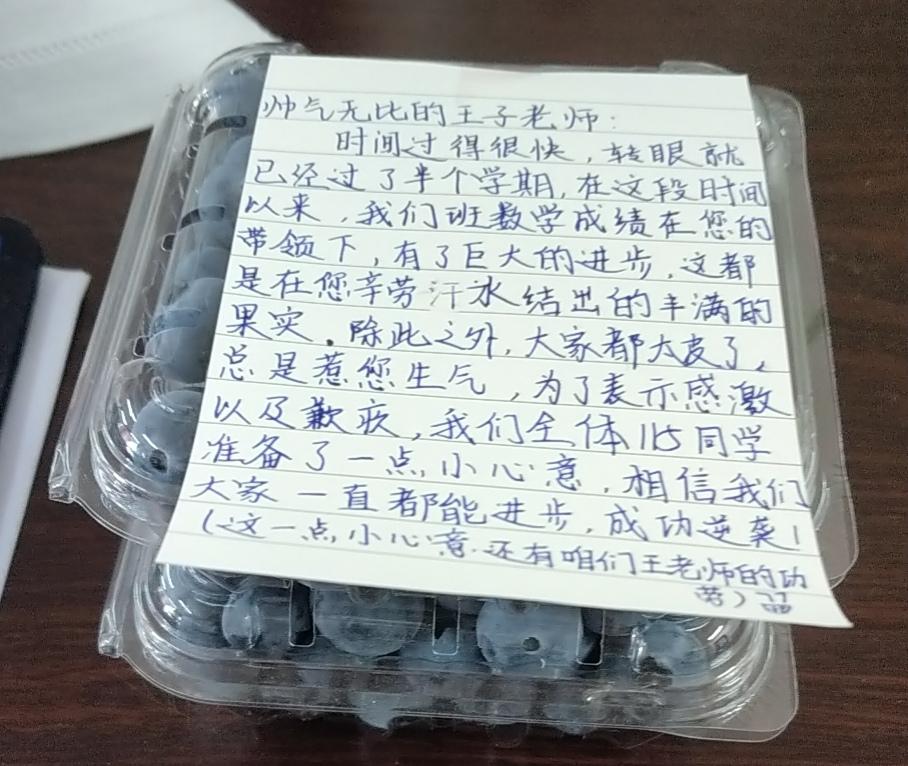 帅气无比的王子老师：
时间过得很快，转眼就
已经过了半个学期，在这段时间
以来，我们班数学成绩在您的
带领下，有了巨大的进步，这都
是在您辛劳汗水结出的丰满的
果实。除此之外，大家都太皮了，
总是惹您生气，为了表示感激
以及歉疚，我们全体115同学
准备了一点小心意，相信我们
大家一直都能进步，成功逆袭！
（这一点小心意.还有咱们王老师的功
劳）